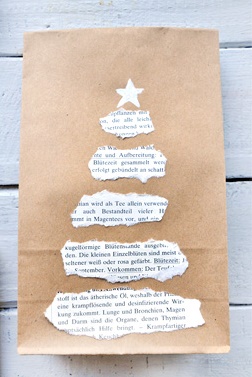 mpflanzen mit
es, die alle leich
wirk
und
nte und Aufbereitung:
Blütezeit gesammelt wer
erfolgt gebündelt an schatt
nian wird als Tee allein verwende
er auch Bestandteil vieler H
mmt in Magentees vor, und ein
kugelförmige Blütenstände ausgebi
den. Die kleinen Einzelblüten sind mei
seltener weiß oder rosa gefärbt. Blütezeit:
September. Vorkommen: Der
stoff ist das ätherische Öl, weshalb der
eine krampflösende und desinfizierende Wir-
kung zukommt. Lunge und Bronchien, Magen
und Darm sind die Organe, denen Thymian
tsächlich Hilfe bringt. – Krampfartiger